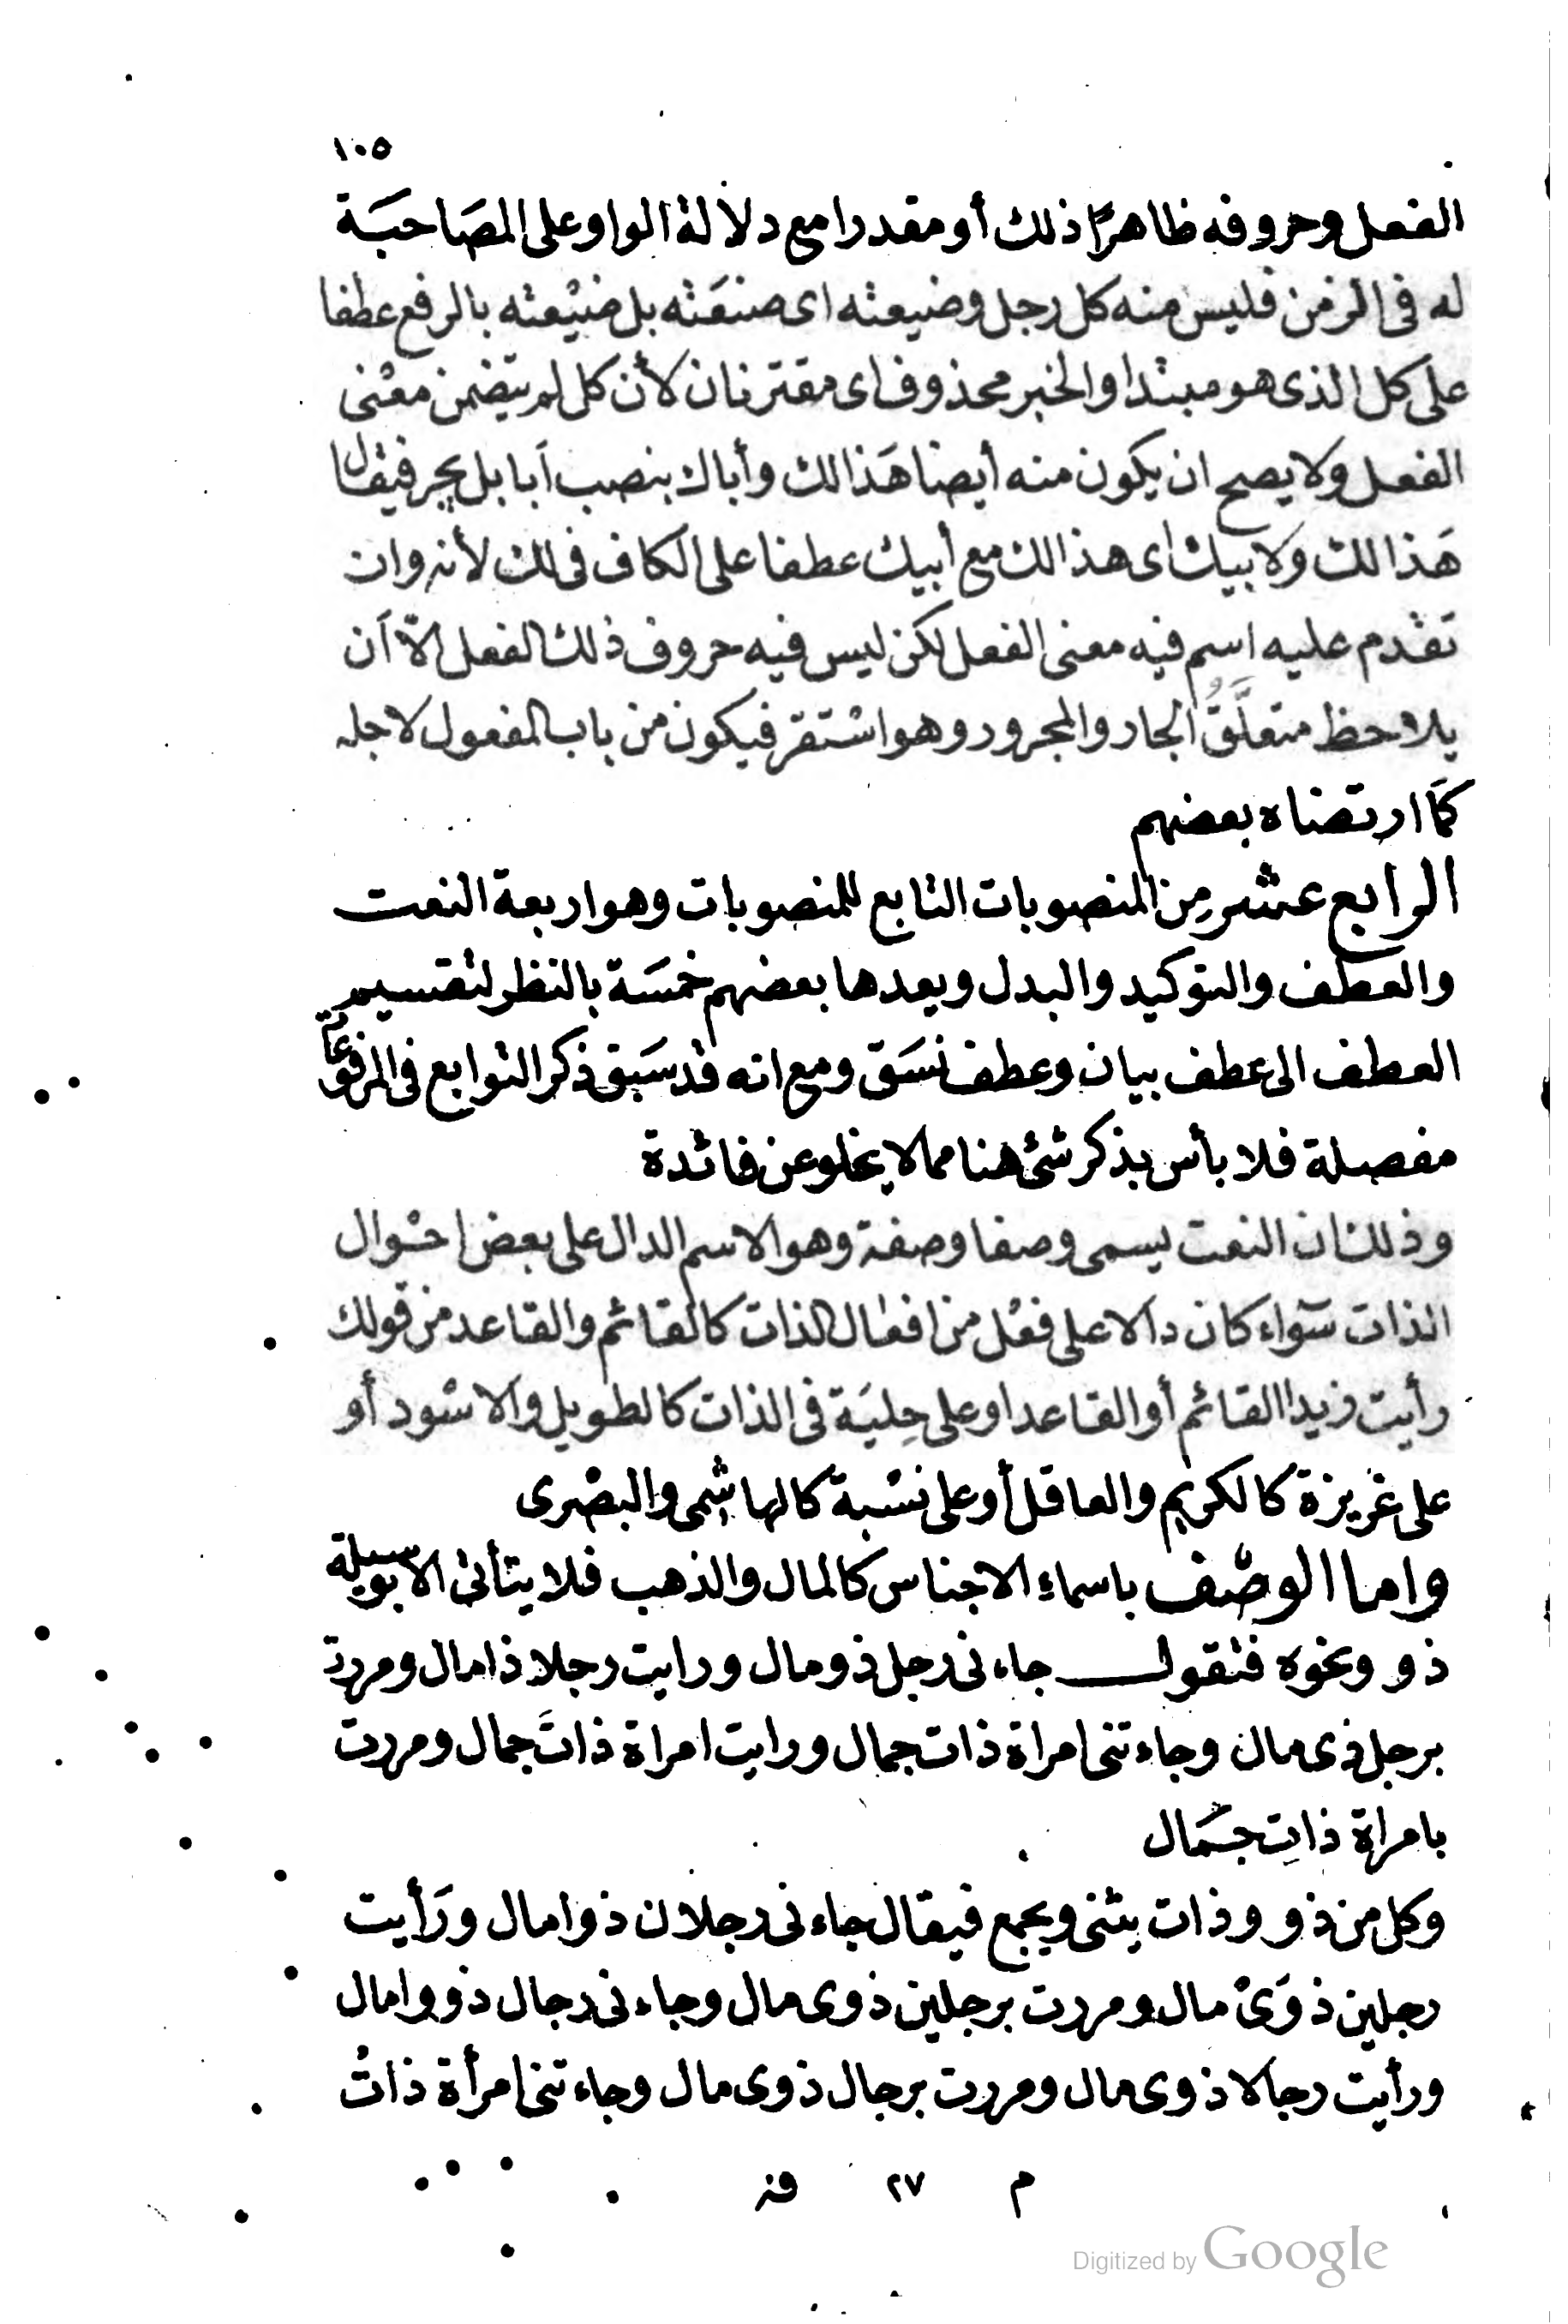 ١٠٥
الفعل وحروفه ظاهرًا ذلك أو مقدرا مع دلالة الواو على المصَاحبَة
له فى الزمن فليس منه كل رجل وضيعته اى صنعَته بل ضيْعته بالرفع عطفا
على كل الذى هو مبتدا والخبر محذوف اى مقترنان لأن كل لم يتضمن معْنى
الفعل ولا يصح ان يكون منه أيضا هَذا لك وأباك بنصب أبا بل يجر فيقال
هَذا لك ولابيك اى هذا لك مع أبيك عطفا على الكاف فى لك لأنه وان
تقدم عليه اسم فيه معنى الفعل لكن ليس فيه حروف ذلك الفعل الّا أن
يلاحظ متعلَّقُ الجار والمجرور وهو اسْتقر فيكون من باب المفعول لاجله
كمَا ارتضاه بعضهم
الرابع عشر مِن المنصوبات التابع للمنصوبات وهو اربعة النعت
والعطف والتوكيد والبدل ويعدها بعضهم خمسَة بالنظر لتقسيم
العطف الى عطف بيان وعطف نسَق ومع انه قد سَبق ذكر التوابع فى المرفوعات
مفصلة فلا بأس بذكر شئ هنا مما لا يخلو عن فائدة
وذلك ان النعت يسمى وصفا وصفة وهو الاسم الدال على بعض احْوال
الذات سَواء كان دالا على فعْل من افعال الذات كالقائم والقاعد من قولك
رأيت زيدا القائم أو القاعد او على حِليَة فى الذات كالطويل والاسْود أو
على غريزة كالكريم والعاقل أو على نسْبة كالهاشِمى والبصْرى
واما الوصْف باسماء الاجناس كالمال والذهب فلا يتأتى الا بوسيلة
ذو ونحوه فتقول جاءنى رجل ذو مال ورايت رجلا ذا مال ومررت
برجل ذى مال وجاءتنى امراة ذات جمال ورايت امراة ذاتَ جمال ومررت
بامراة ذاتِ جمَال
وكل من ذو وذات يثنى ويجمع فيقال جاءنى رجلان ذوا مال ورَأيت
رجلين ذوَىْ مال ومررت برجلين ذوى مال وجاءنى رجال ذووا مال
ورأيت رجالا ذوى مال ومررت برجال ذوى مال وجاءتنى امرأة ذاتُ
م ٢٧ فذ
Digitized by Google